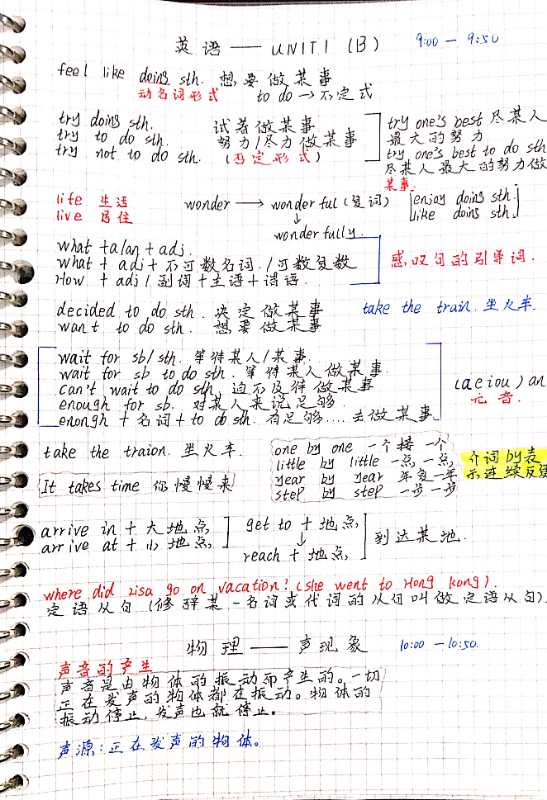 英语——UNIT1 (B) 9:00—9:50
feel like doing sth. 想要做某事
动名词形式 to do→不定式
try doing sth. 试着做某事
try to do sth. 努力/尽力做某事
try not to do sth. (否定形式)
try one's best 尽某人
最大的努力
try one's best to do sth
尽某人最大的努力做
某事.
life 生活
live 居住
wonder → wonderful (复词)
↓
wonderfully.
enjoy doing sth.
like doing sth.
what +a/an + adj.
what + adj + 不可数名词./可数复数
How + adj / 副词+主语+谓语.
感叹句的引导词.
decided to do sth. 决定做某事
want to do sth. 想要做某事
take the train. 坐火车.
wait for sb/sth. 等待某人/某事.
wait for sb to do sth. 等待某人做某事.
can't wait to do sth. 迫不及待做某事
enough for sb. 对某人来说足够
enongh +名词+to do sth. 有足够....去做某事
(aeiou) an
元音.
take the traion. 坐火车.
It takes time 你慢慢来
one by one 一个接一个
little by little 一点,一点,
year by year 年复一年
step by step 一步一步
介词by表
示连续反复
arrive in + 大地点,
arrive at + 小地点,
get to + 地点,
↓
reach + 地点,
到达某地.
where did Lisa go on vacation? (she went to Hong Kong).
定语从句 (修辞某一名词或代词的从句叫做定语从句)
物理——声现象 10:00—10:50.
声音的产生
声音是由物体的振动而产生的。一切
正在发声的物体都在振动。物体的
振动停止,发声也就停止.
声源:正在发声的物体。